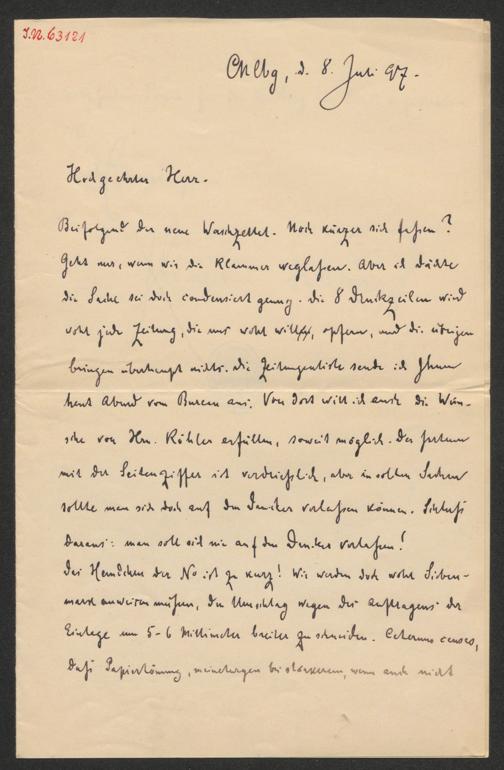 I.N. 63121
Chlbg, d. 8. Juli 97.
Hochgeehrter Herr.
Beifolgend der neue Waschzettel. Noch kürzer sich fassen?
Geht nur, wenn wir die Klammer weglassen. Aber ich dächte
die Sache sei doch condensiert genug. Die 8 Druckzeilen wird
wohl jede Zeitung, die uns wohl will, opfern, und die übrigen
bringen überhaupt nichts. Die Zeitungsliste sende ich Ihnen
heut Abend vom Bureau aus. Von dort will ich auch die Wün-
sche von Hrn. Köhler erfüllen, soweit möglich. Der Irrtum
mit der Seitenziffer ist verdrießlich, aber in solchen Sachen
sollte man sich doch auf den Drucker verlassen können. Schluß
daraus: man soll sich nie auf den Drucker verlassen!
Das Hemdchen der No ist zu kurz! Wir werden doch wohl
anweisen müssen, den Umschlag wegen des Auftragens der
Einlage um 5-6 Millimeter breiter zu schneiden. Ceterum censeo,
daß Papiertönung, meinetwegen bei stärkerem, wenn auch nicht